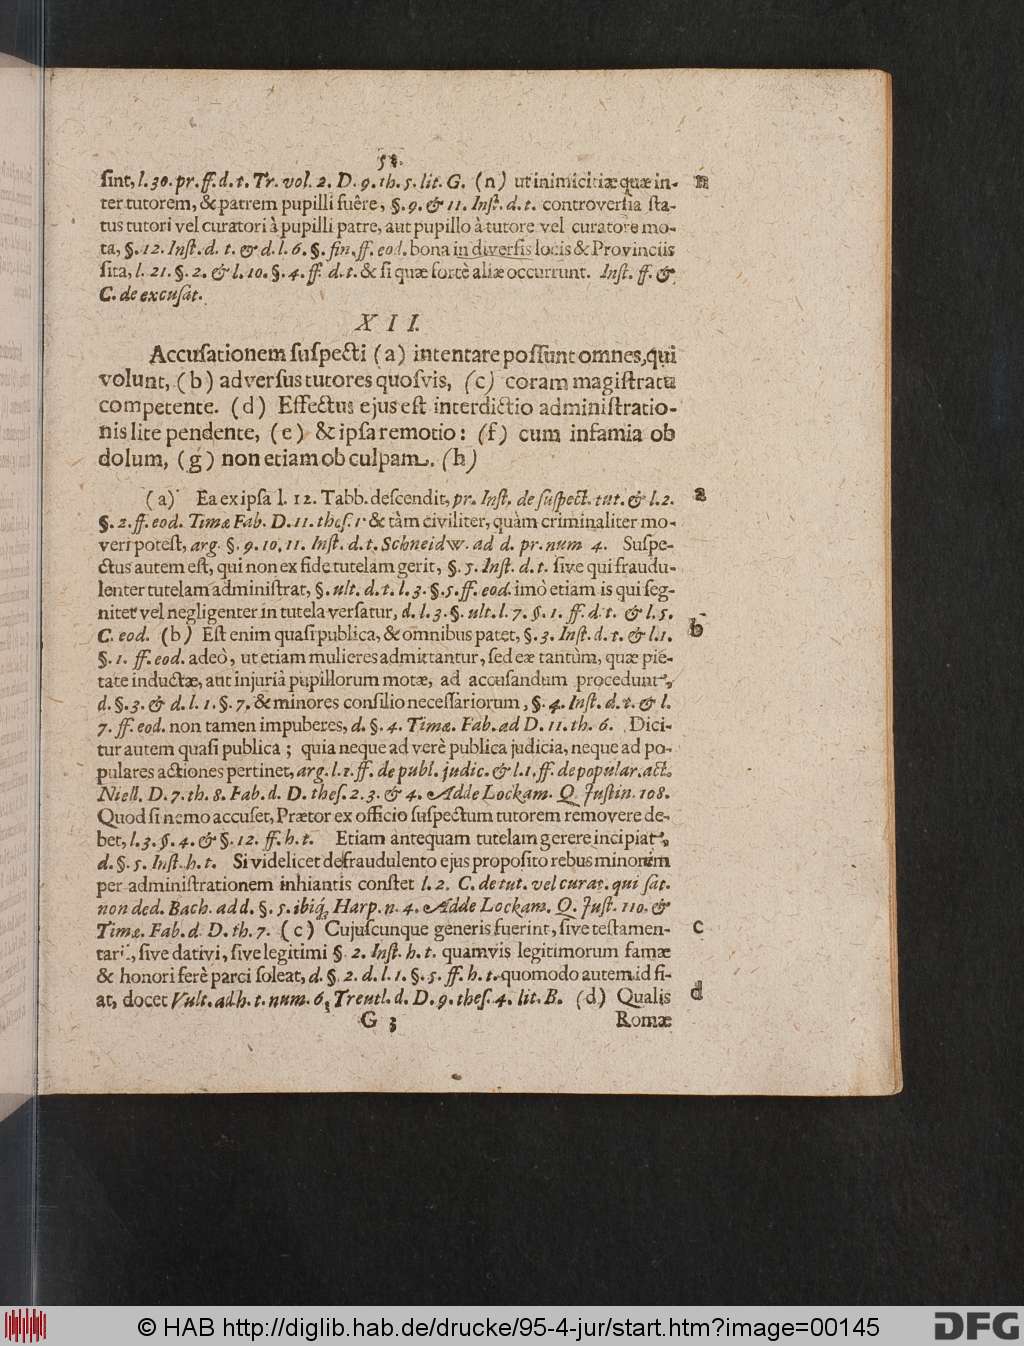 ſint, l. 30. pr. ff. d. t. Tr. vol. 2. D. 9. th. 5. lit. G. (n) ut inimicitiæ quæ in- n
ter tutorem, & patrem pupilli fuêre, §. 9. & 11. Inſt. d. t. controverſia ſta-
tus tutori vel curatori à pupilli patre, aut pupillo à tutore vel curatore mo-
ta, §. 12. Inſt. d. t. & d. l. 6. §. fin. ff. eod. bona in diverſis locis & Provinciis
ſita, l. 21. §. 2. & l. 10. §. 4. ff. d. t. & ſi quæ fortè aliæ occurrunt. Inſt. ff. &
C. de excuſat.
XII.
Accuſationem ſuſpecti (a) intentare poſſunt omnes, qui
volunt, (b) adverſus tutores quoſvis, (c) coram magiſtratu
competente. (d) Effectus ejus eſt interdictio adminiſtratio-
nis lite pendente, (e) & ipſa remotio: (f) cum infamia ob
dolum, (g) non etiam ob culpam. (h)
(a) Ea ex ipſa l. 12. Tabb. deſcendit, pr. Inſt. de ſuſpect. tut. & l. 2. a
§. 2. ff. eod. Timæ Fab. D. 11. theſ. 1. & tàm civiliter, quàm criminaliter mo-
veri poteſt, arg. §. 9. 10. 11. Inſt. d. t. Schneidw. ad d. pr. num 4. Suſpe-
ctus autem eſt, qui non ex fide tutelam gerit, §. 5. Inſt. d. t. ſive qui fraudu-
lenter tutelam adminiſtrat, §. ult. d. t. l. 3. §. 5. ff. eod. imò etiam is qui ſeg-
niter vel negligenter in tutela verſatur, d. l. 3. §. ult. l. 7. §. 1. ff. d t. & l. 5.
C. eod. (b) Eſt enim quaſi publica, & omnibus patet, §. 3. Inſt. d. t. & l. 1. b
§. 1. ff. eod. adeò, ut etiam mulieres admittantur, ſed eæ tantùm, quæ pie-
tate inductæ, aut injuriâ pupillorum motæ, ad accuſandum procedunt,
d. §. 3. & d. l. 1. §. 7. & minores conſilio neceſſariorum, §. 4. Inſt. d. t. & l.
7. ff. eod. non tamen impuberes, d. §. 4. Timæ. Fab. ad D. 11. th. 6. Dici-
tur autem quaſi publica; quia neque ad verè publica judicia, neque ad po-
pulares actiones pertinet, arg. l. 1. ff. de publ. judic. & l. 1. ff. de popular. act.
Niell. D. 7. th. 8. Fab. d. D. theſ. 2. 3. & 4. Adde Lockam. Q. Juſtin. 108.
Quod ſi nemo accuſet, Prætor ex officio ſuſpectum tutorem removere de-
bet, l. 3. §. 4. & §. 12. ff. h. t. Etiam antequam tutelam gerere incipiat,
d. §. 5. Inſt. h. t. Si videlicet de fraudulento ejus propoſito rebus minorum
per adminiſtrationem inhiantis conſtet l. 2. C. de tut. vel curat. qui ſat.
non ded. Bach. ad d. §. 5. ibiq; Harp. n. 4. Adde Lockam. Q. Juſt. 110. &
Timæ. Fab. d. D. th. 7. (c) Cujuſcunque generis fuerint, ſive teſtamen- c
tarii, ſive dativi, ſive legitimi §. 2. Inſt. h. t. quamvis legitimorum famæ
& honori ferè parci ſoleat, d. §. 2. d. l. 1. §. 5. ff. h. t. quomodo autem id fi-
at, docet Vult. ad h. t. num. 6. Treutl. d. D. 9. theſ. 4. lit. B. (d) Qualis d
G 3 Romæ
© HAB http://diglib.hab.de/drucke/95-4-jur/start.htm?image=00145
DFG